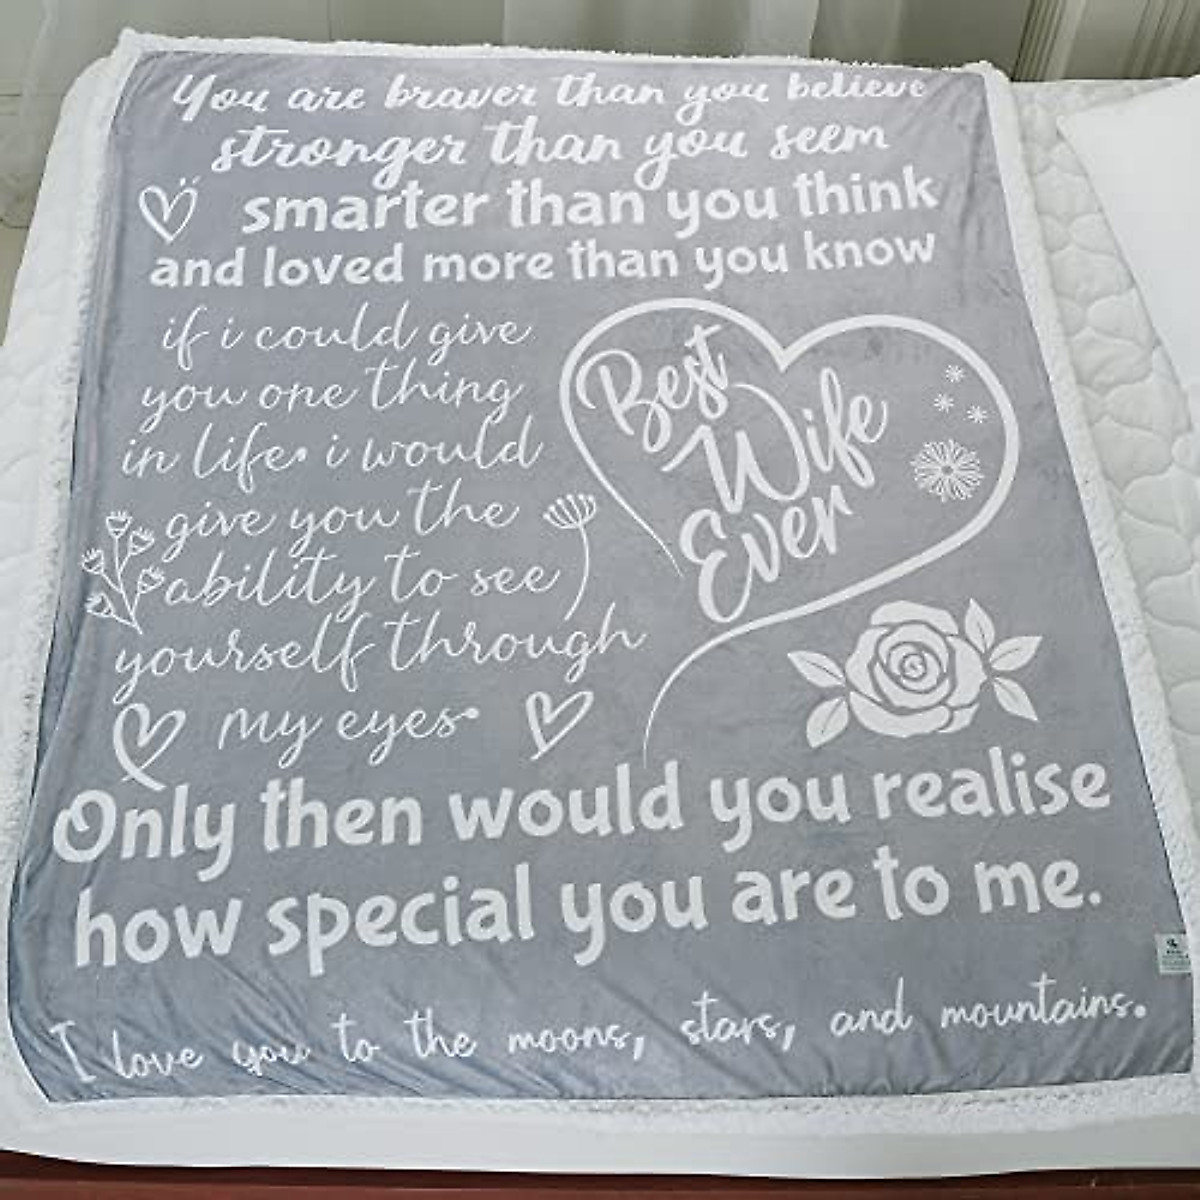 You are braver than you believe
stronger than you seem
smarter than you think
and loved more than you know
if i could give
you one thing
in life. i would
give you the
ability to see
yourself through
my eyes.
Best
Wife
Ever
Only then would you realise
how special you are to me.
I love you to the moons, stars, and mountains.